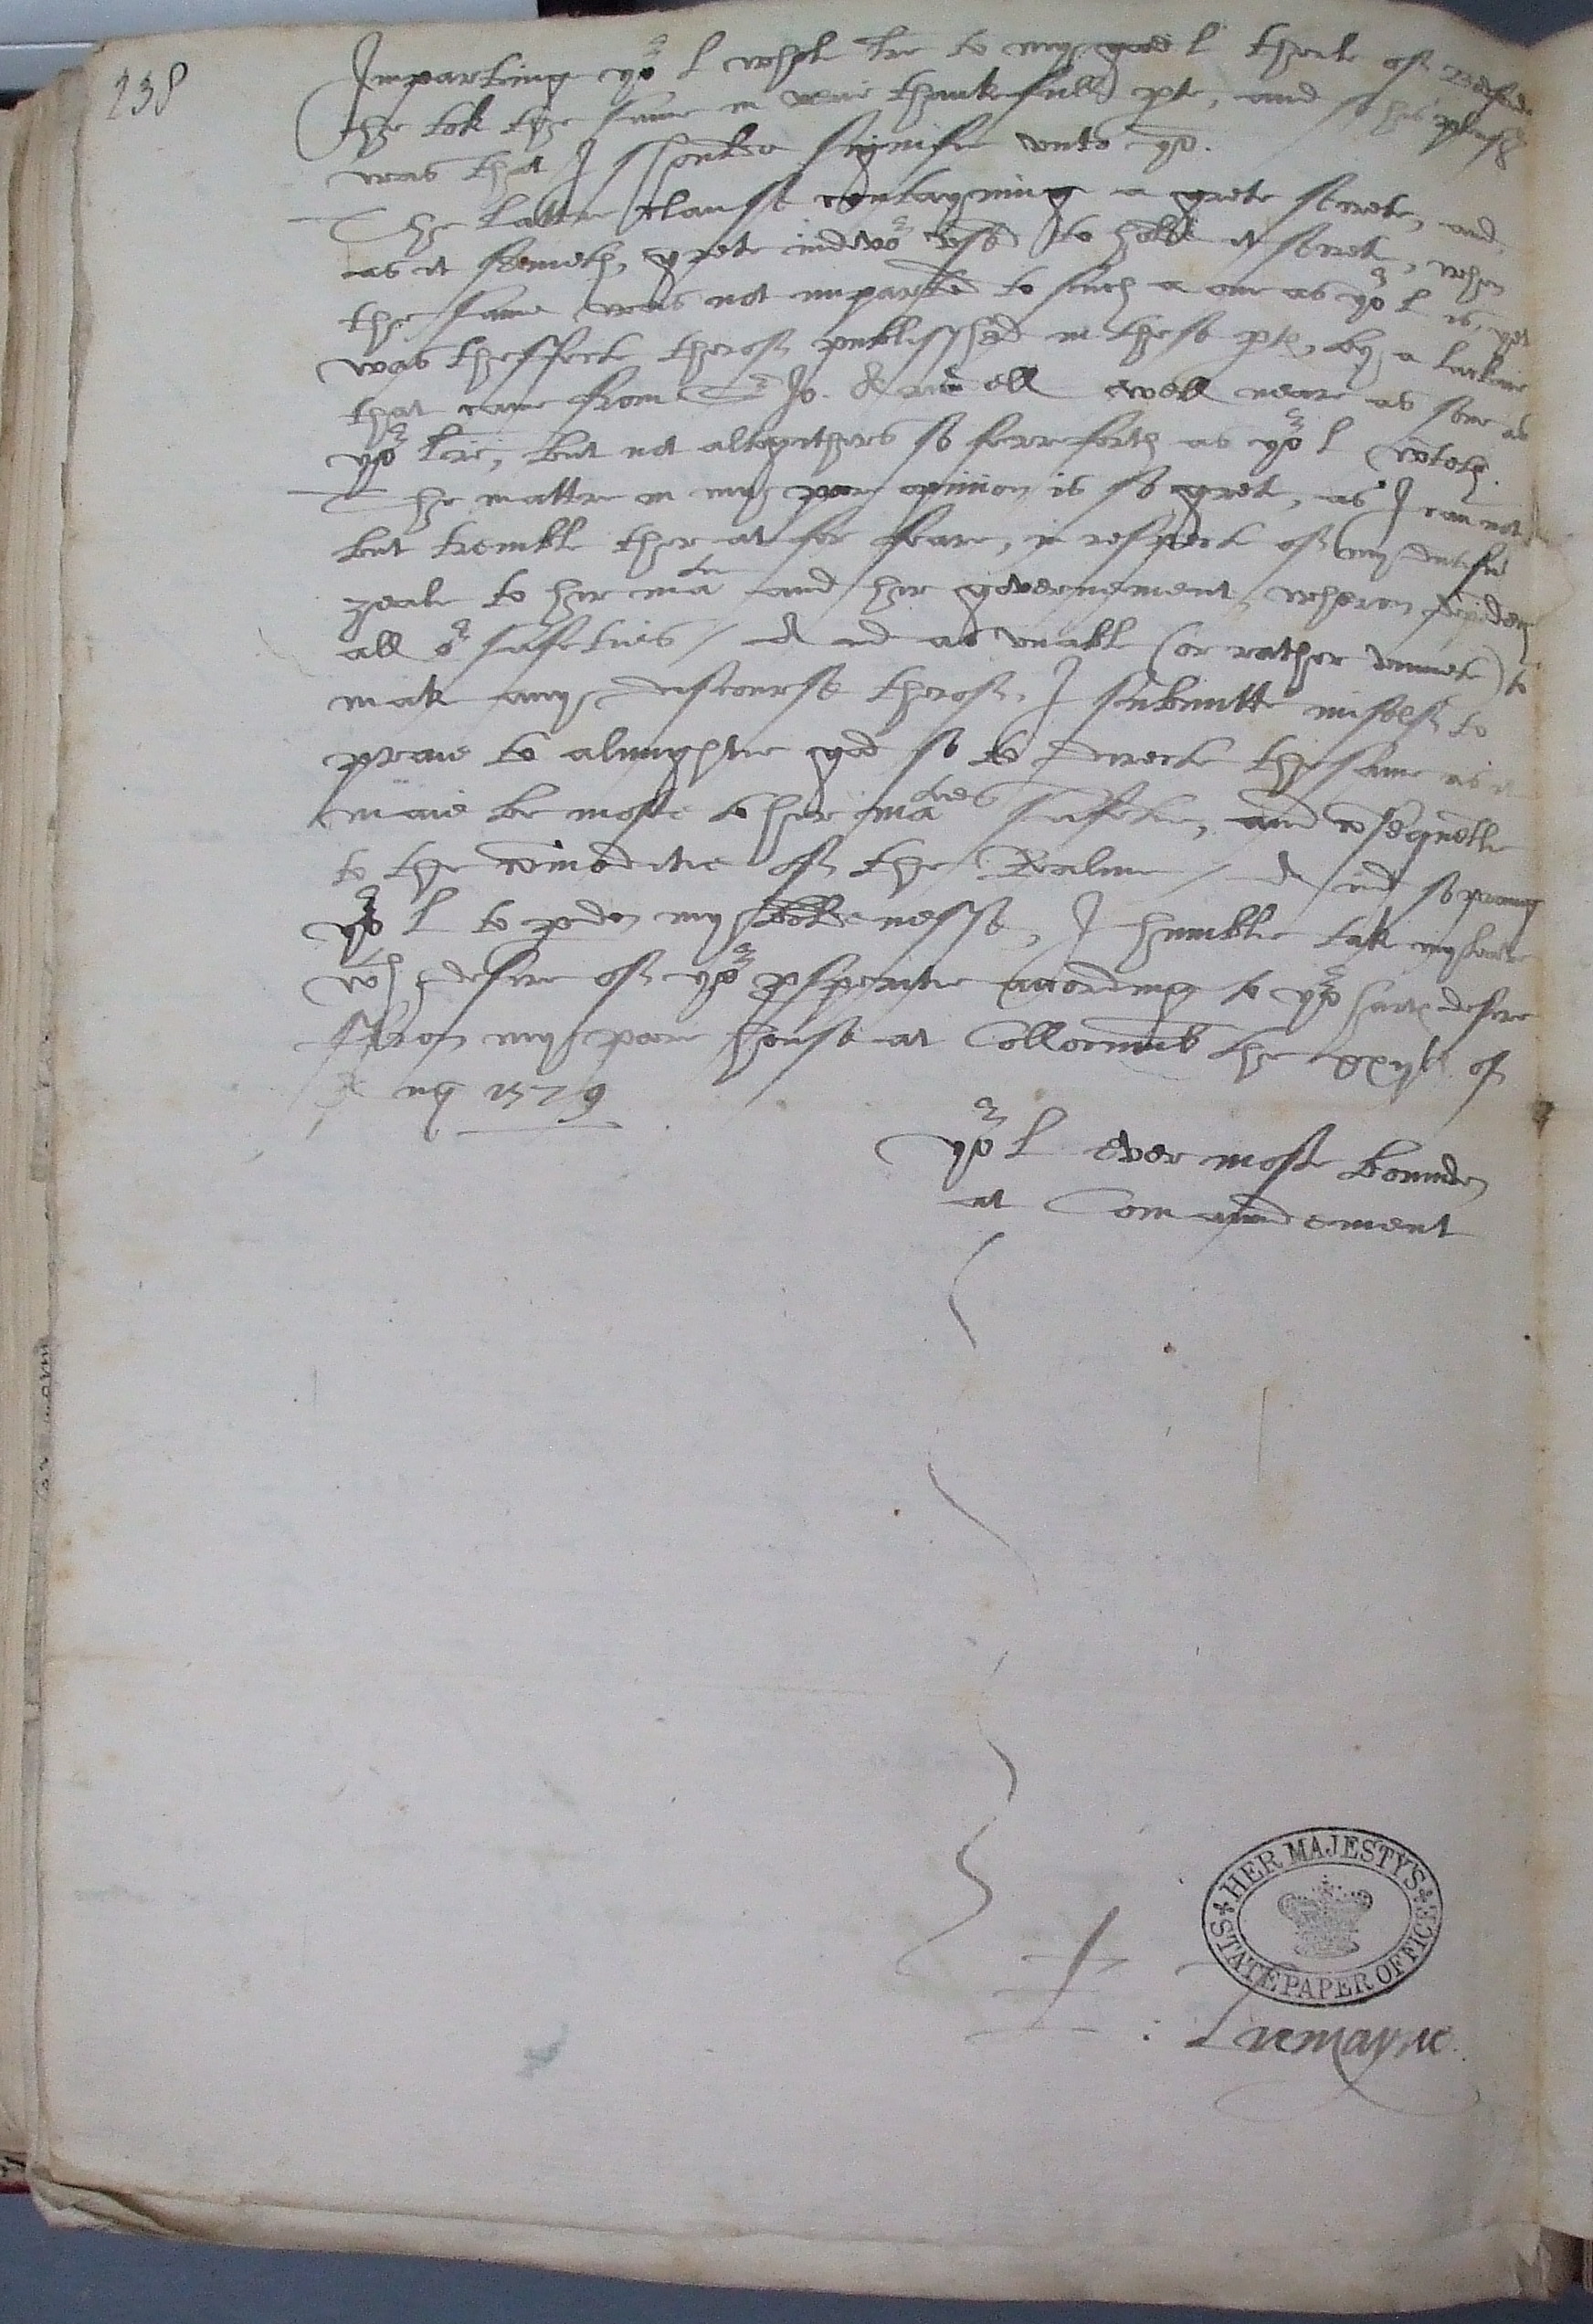 238
Imparting yor L whol lre to my good L therle of Bedforde
he tok the same in verie thankfull pte, and so his pleasr
was that I shoulde signifie unto yo.
The latter clause contayning a grete secrete, and,
as it semeth, grete indevor used to holde it secret, when
the same was not imparted to such a one as yor L is, yet
was theffect therof publisshed in these ptes, by a lackeie
that came from Sr Jo. Arundell well neare as sone as
yor lre, but not altogithers so ferreforth as yor L wroteth.
The mattre in my poor opinion is so gret, as I can not
but tremble ther at for feare, in respect of my dutifu
zeale to her matie and her governement, wheron dependeth
all or safeties / And as unable (or rather unmete) to
mak any discourse therof, I submitte miself to
praie to almightie god so to direct the same as it
maie be moste to her maties safetie, and cosequetlie
to the comoditie of the Realme / And so praing
yor L to pdon my boldenesse, I humblie tak my leave
wth desire of yor psperitie according to yor hartes desire
From my poore house at Collocumb the of
Aug 1579
yor L ever most bounden
at Comaundement
HER MAJESTY'S STATE PAPER OFFICE
E : Tremayne.